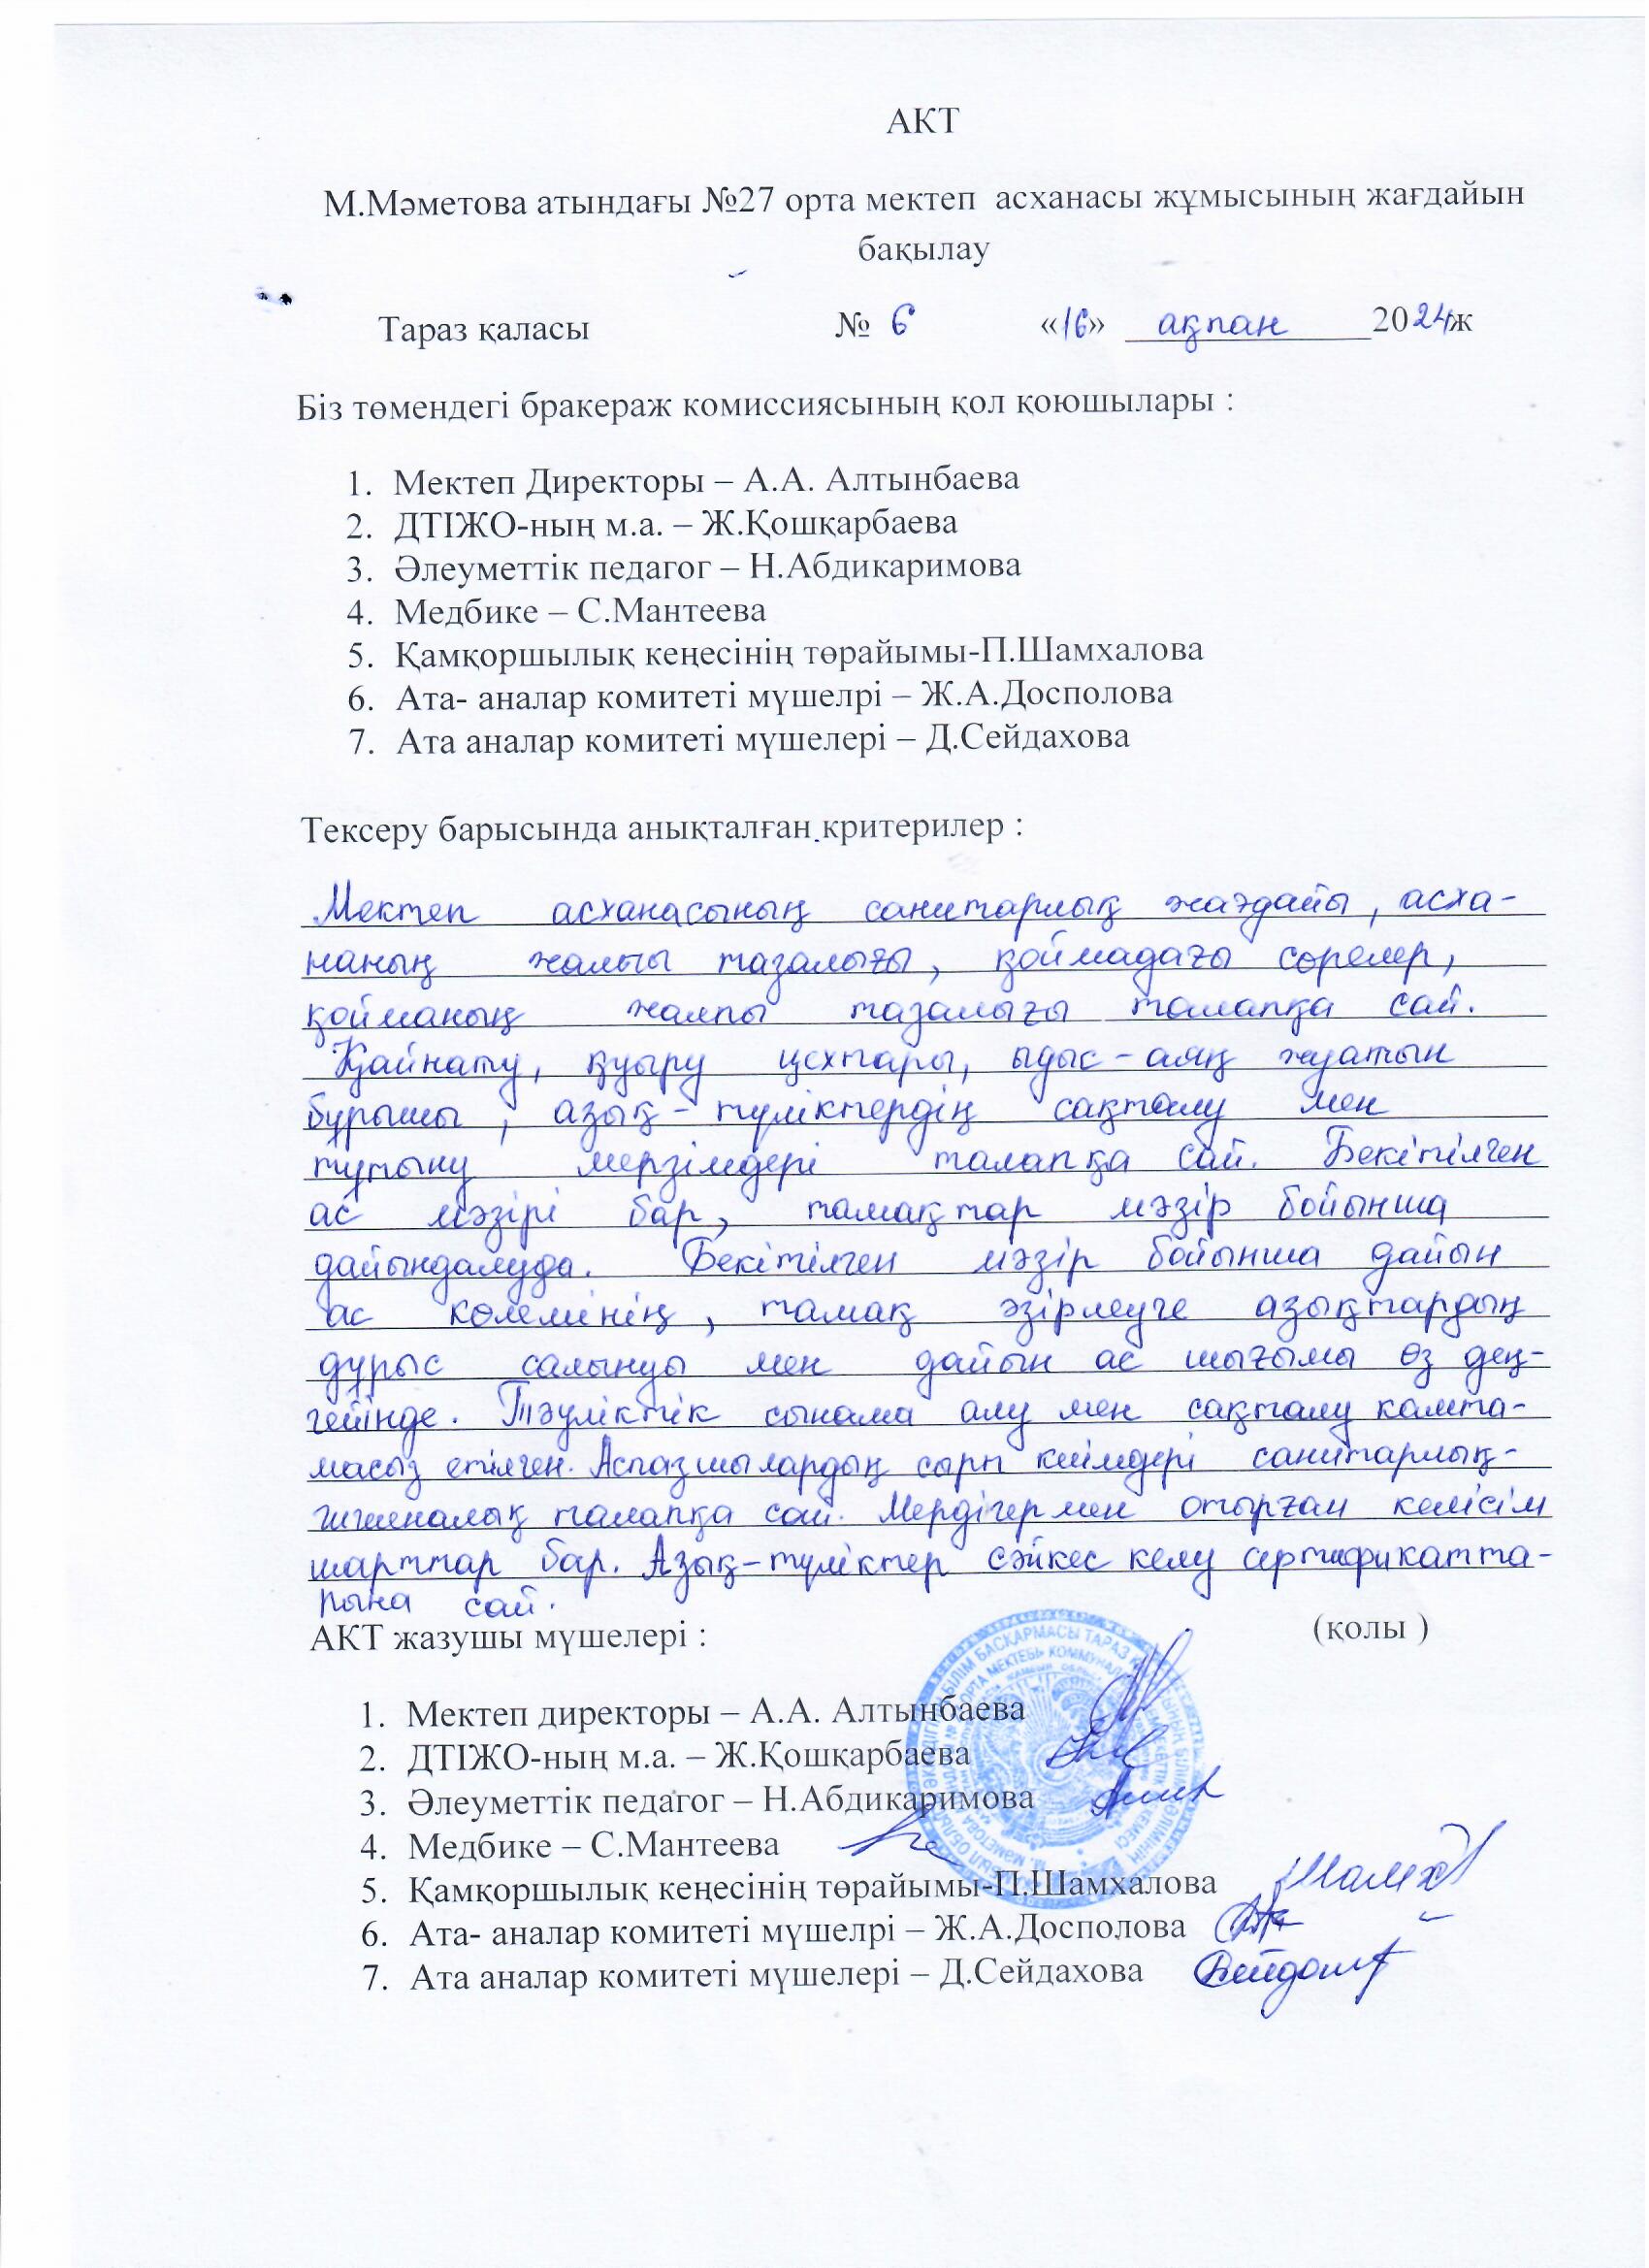 АКТ
М.Мәметова атындағы №27 орта мектеп асханасы жұмысының жағдайын
бақылау
Тараз қаласы № 6 «16» ақпан 2024ж
Біз төмендегі бракераж комиссиясының қол қоюшылары :
1. Мектеп Директоры – А.А. Алтынбаева
2. ДТІЖО-ның м.а. – Ж.Қошқарбаева
3. Әлеуметтік педагог – Н.Абдикаримова
4. Медбике – С.Мантеева
5. Қамқоршылық кеңесінің төрайымы-П.Шамхалова
6. Ата- аналар комитеті мүшелрі – Ж.А.Досполова
7. Ата аналар комитеті мүшелері – Д.Сейдахова
Тексеру барысында анықталған критерилер :
Мектеп асханасының санитарлық жағдайы, асха-
наның жалпы тазалығы, қоймадағы сөрелер,
қойманың жалпы тазалығы талапқа сай.
Қайнату, қуыру цехтары, ыдыс-аяқ жуатын
бұрышы, азық-түліктердің сақталу мен
тұтыну мерзімдері талапқа сай. Бекітілген
ас мәзірі бар, тамақтар мәзір бойынша
дайындалуда. Бекітілген мәзір бойынша дайын
ас көлемінің, тамақ әзірлеуге азықтардың
дұрыс салынуы мен дайын ас шығымы өз дең-
гейінде. Тәуліктік сынама алу мен сақталу қамта-
масыз етілген. Аспазшылардың сырт киімдері санитарлық-
гигиеналық талапқа сай. Мердігермен отырған келісім
шарттар бар. Азық-түліктер сәйкес келу сертификатта-
рына сай.
АКТ жазушы мүшелері : (қолы )
1. Мектеп директоры – А.А. Алтынбаева
2. ДТІЖО-ның м.а. – Ж.Қошқарбаева
3. Әлеуметтік педагог – Н.Абдикаримова
4. Медбике – С.Мантеева
5. Қамқоршылық кеңесінің төрайымы-П.Шамхалова
6. Ата- аналар комитеті мүшелрі – Ж.А.Досполова
7. Ата аналар комитеті мүшелері – Д.Сейдахова